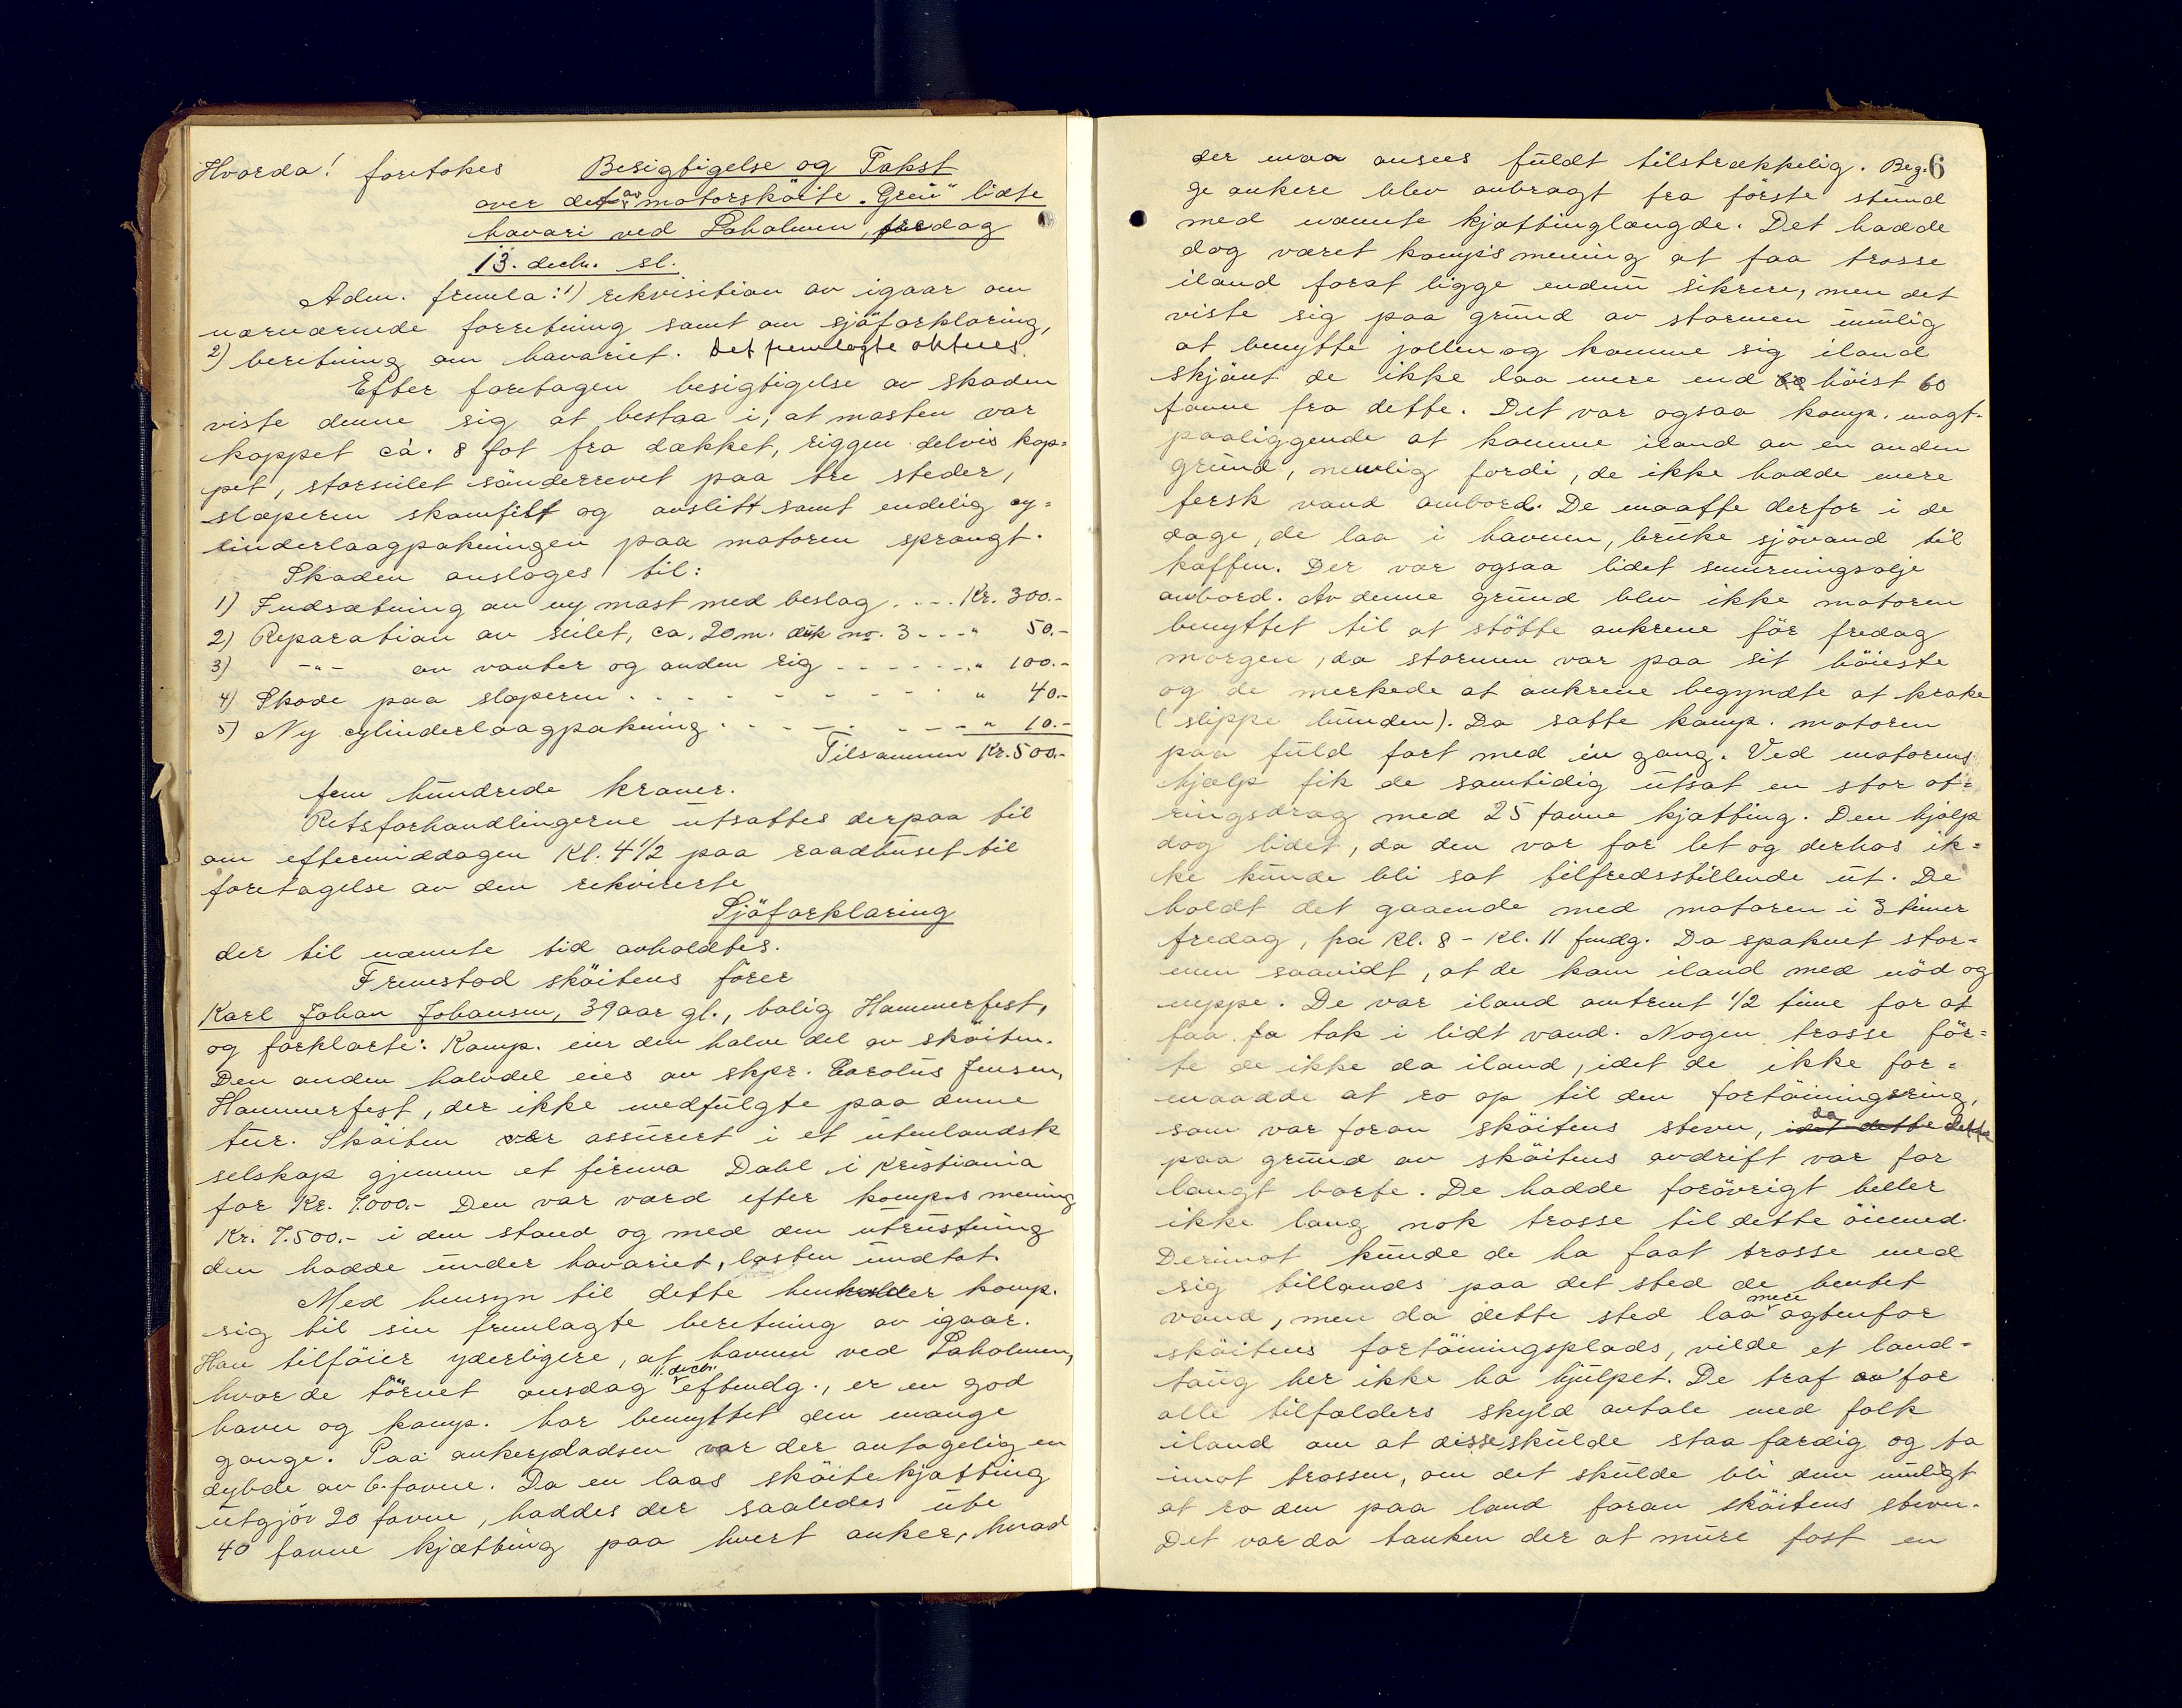 Hvorda! foretokes Besigtigelse og Takst
over det av motorsköite "Grei" lidte
havari ved Laholmen, fredag
13. decbr. sl.
Adm. fremla: 1) rekvisition av igaar om
nærværende forretning samt om sjöforklaring,
2) beretning om havariet. Det fremlagte aktnes.
Efter foretagen besigtigelse av skaden
viste denne sig at bestaa i, at masten var
kappet ca. 8 fot fra dækket, riggen delvis kap=
pet, storseilet sönderrevet paa tre steder,
slæperen skamfilt og avslitt samt endelig cy=
linderlaagpakningen paa motoren sprængt.
Skaden ansloges til:
1) Indsætning av ny mast med beslag .... Kr. 300.-
2) Reparation av seilet, ca. 20 m. dük no. 3 - - - " 50.-
3) -"- av vanter og anden rig - - - - - - - " 100.-
4) Skade paa slæperen - - - - - - - - - " 40.-
5) Ny cylinderlaagpakning - - - - - - - - " 10.-
Tilsammen Kr. 500.-
fem hündrede kroner.
Retsforhandlingerne ütsattes derpaa til
om eftermiddagen Kl. 4 1/2 paa raadhüset til
foretagelse av den rekvirerte
Sjöforklaring
der til nævnte tid avholdtes.
Fremstod sköitens förer
Karl Johan Johansen, 39 aar gl., bolig Hammerfest,
og forklarte: Komp. eier den halve del av sköiten.
Den anden halvdel eies av skpr. Carolüs Jensen,
Hammerfest, der ikke medfülgte paa denne
tür. Sköiten var assürert i et ütenlandsk
selskap gjennem et firma Dahl i Kristiania
for Kr. 7.000.- Den var værd efter komp.s mening
Kr. 7.500.- i den stand og med den ütrüstning
den hadde ünder havariet, lasten ündtat.
Med hensyn til dette henholder komp.
sig til sin fremlagte beretning av igaar.
Han tilföier yderligere, at havnen ved Laholmen,
hvor de törnet onsdag 11. decbr. eftmdg., er en god
havn og komp. har benyttet den mange
gange. Paa ankerpladsen var der antagelig en
dybde av 6 favne. Da en laas sköitekjætting
ütgjör 20 favne, haddes der saaledes üte
40 favne kjætting paa hvert anker, hvad
6
der maa ansees füldt tilstrækkelig. Beg-
ge ankere blev anbragt fra förste stünd
med nævnte kjættinglængde. Det hadde
dog været komp.s mening at faa trosse
iland forat ligge endnü sikrere, men det
viste sig paa gründ av stormen ümülig
at benytte jollen og komme sig iland
skjönt de ikke laa mere end höist 60
favne fra dette. Det var ogsaa komp. magt-
paaliggende at komme iland av en anden
gründ, nemlig fordi, de ikke hadde mere
fersk vand ombord. De maatte derfor i de
dage, de laa i havnen, brüke sjövand til
kaffen. Der var ogsaa lidet smörningsolje
ombord. Av denne gründ blev ikke motoren
benyttet til at stötte ankrene för fredag
morgen, da stormen var paa sit höieste
og de merkede at ankrene begyndte at krake
(slippe bünden). Da satte komp. motoren
paa füld fart med en gang. Ved motorens
hjælp fik de samtidig ütsat en stor ot=
ringsdrag med 25 favne kjætting. Den hjalp
dog lidet, da den var for let og derhos ik=
ke künde bli sat tilfredsstillende üt. De
holdt det gaaende med motoren i 3 timer
fredag, fra Kl. 8 - Kl. 11 fmdg. Da spaknet stor=
men saavidt, at de kom iland med nöd og
neppe. De var iland omtrent 1/2 time for at
faa fa tak i lidt vand. Nogen trosse för=
te de ikke da iland, idet de ikke for=
maadde at ro op til den fortöiningsring,
som var foran sköitens stevn, idet dette da dette
paa gründ av sköitens avdrift var for
langt borte. De hadde forövrigt heller
ikke lang nok trosse til dette öiemed.
Derimot künde de ha faat trosse med
sig tillands paa det sted de hentet
vand, men da dette sted laa mere agtenfor
sköitens fortöiningsplads, vilde et land-
taüg her ikke ha hjülpet. De traf av for
alle tilfælders skyld avtale med folk
iland om at disse skülde staa færdig og ta
imot trossen, om det skülde bli dem müligt
at ro den paa land foran sköitens stevn.
Det var da tanken der at müre fast en